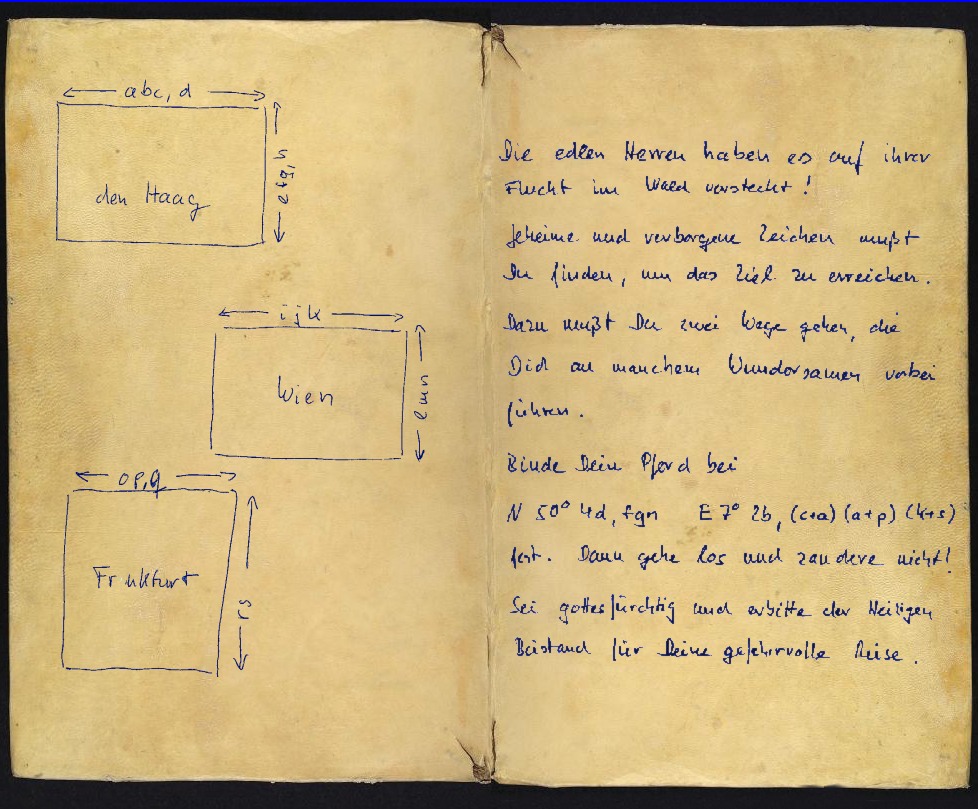 abc, d
efg,h
den Haag
ijk
lmn
Wien
op,q
rs
Frnkfurt
Die edlen Herren haben es auf ihrer
Flucht im Wald versteckt!
Geheime und verborgene Zeichen mußt
Du finden, um das Ziel zu erreichen.
Dazu mußt Du zwei Wege gehen, die
Dich an manchem Wundersamen vorbei
führen.
Binde Dein Pferd bei
N 50° 4d, fgn E 7° 2b, (c+a) (a+p) (k+s)
fest. Dann gehe los und zaudere nicht!
Sei gottesfürchtig und erbitte der Heiligen
Beistand für Deine gefahrvolle Reise.